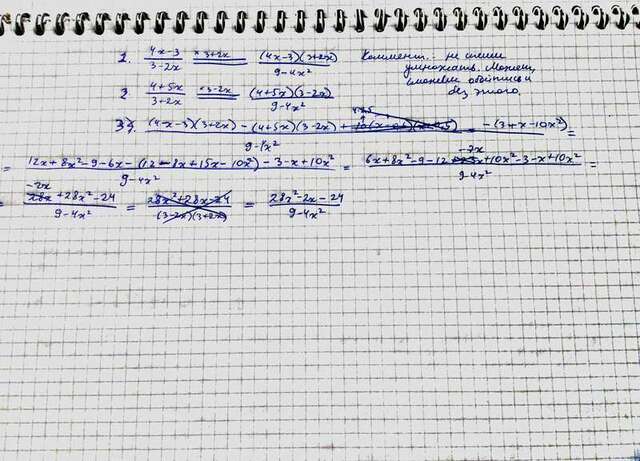 1. (4x-3)/(3-2x) ×3+2x = ((4x-3)(3+2x))/(9-4x²)
Коммент.: не спеши умножать. Может, сможем обойтись и без этого.
2 (4+5x)/(3+2x) ×3-2x = ((4+5x)(3-2x))/(9-4x²)
3). ((4x-3)(3+2x) - (4+5x)(3-2x) - (3+x-10x²))/(9-4x²) =
= (12x+8x²-9-6x-(12-8x+15x-10x²)-3-x+10x²)/(9-4x²) = (6x+8x²-9-12-7x+10x²-3-x+10x²)/(9-4x²) =
= (-2x+28x²-24)/(9-4x²) = (28x²+28x-24)/((3-2x)(3+2x)) = (28x²-2x-24)/(9-4x²)